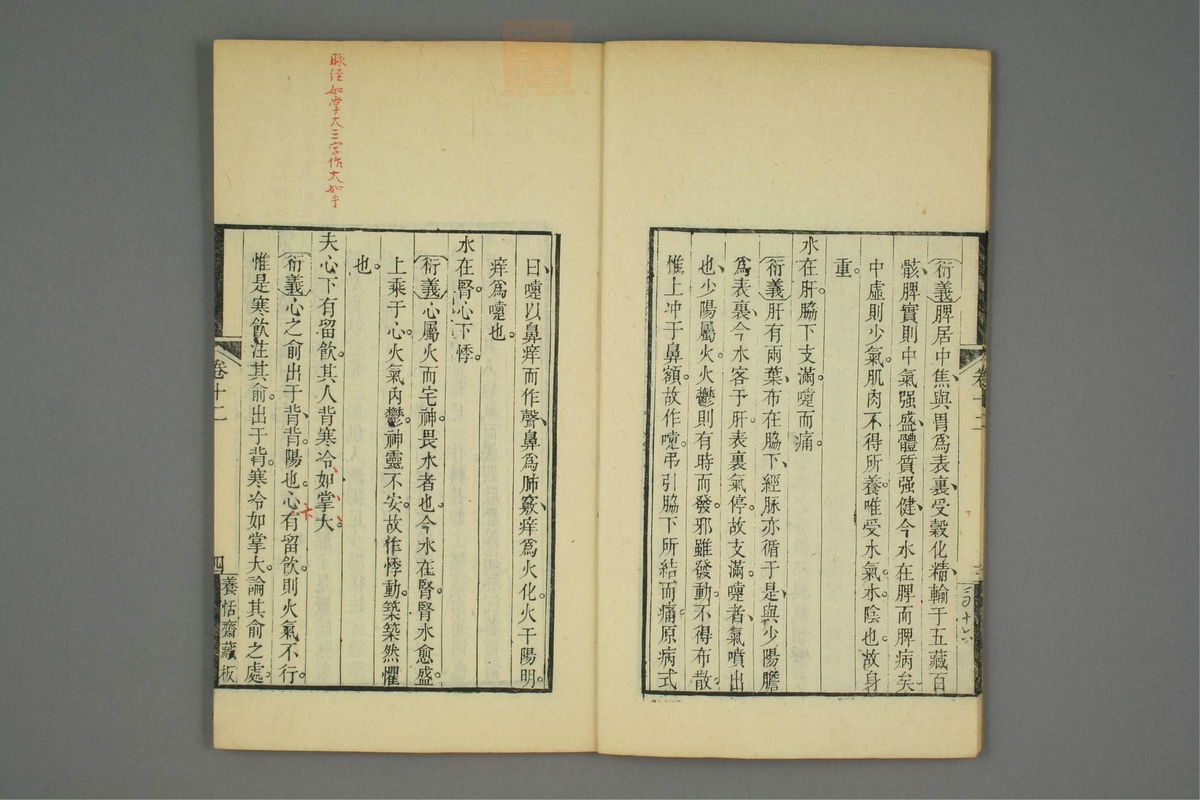 衍義脾居中焦、與胃爲表裏、受穀化精、輸于五藏百
骸、脾實則中氣强盛、體質强健、今水在脾而脾病矣、
中虛則少氣。肌肉不得所養。唯受水氣。水陰也。故身
重。
水在肝脇下支滿。嚏而痛。
衍義肝有兩葉、布在脇下、經脉亦循于是、與少陽膽
爲表裏、今水客于肝、表裏氣停。故支滿。嚏者、氣噴出
也、少陽屬火。火鬱則有時而發。邪雖發動。不得布散。
惟上冲于鼻頟。故作嚏。弔引脇下所結而痛。原病式
卷十二
三
曰嚏以鼻痒而作聲、鼻爲肺竅、痒爲火化。火干陽明。
痒爲嚏也。
水在腎。心下悸。
衍義心屬火而宅神。畏水者也。今水在腎。腎水愈盛。
上乘于心。火氣內鬱。神靈不安。故作悸動。築築然懼
也。
夫心下有留飮。其人背寒冷、如掌大。
衍義心之俞出于背、背陽也。心有留飮。則火氣不行。
惟是寒飮注其俞。出于背。寒冷如掌大。論其俞之處。
卷十二
四
養恬齋藏板
脉経如掌大三字作大如手